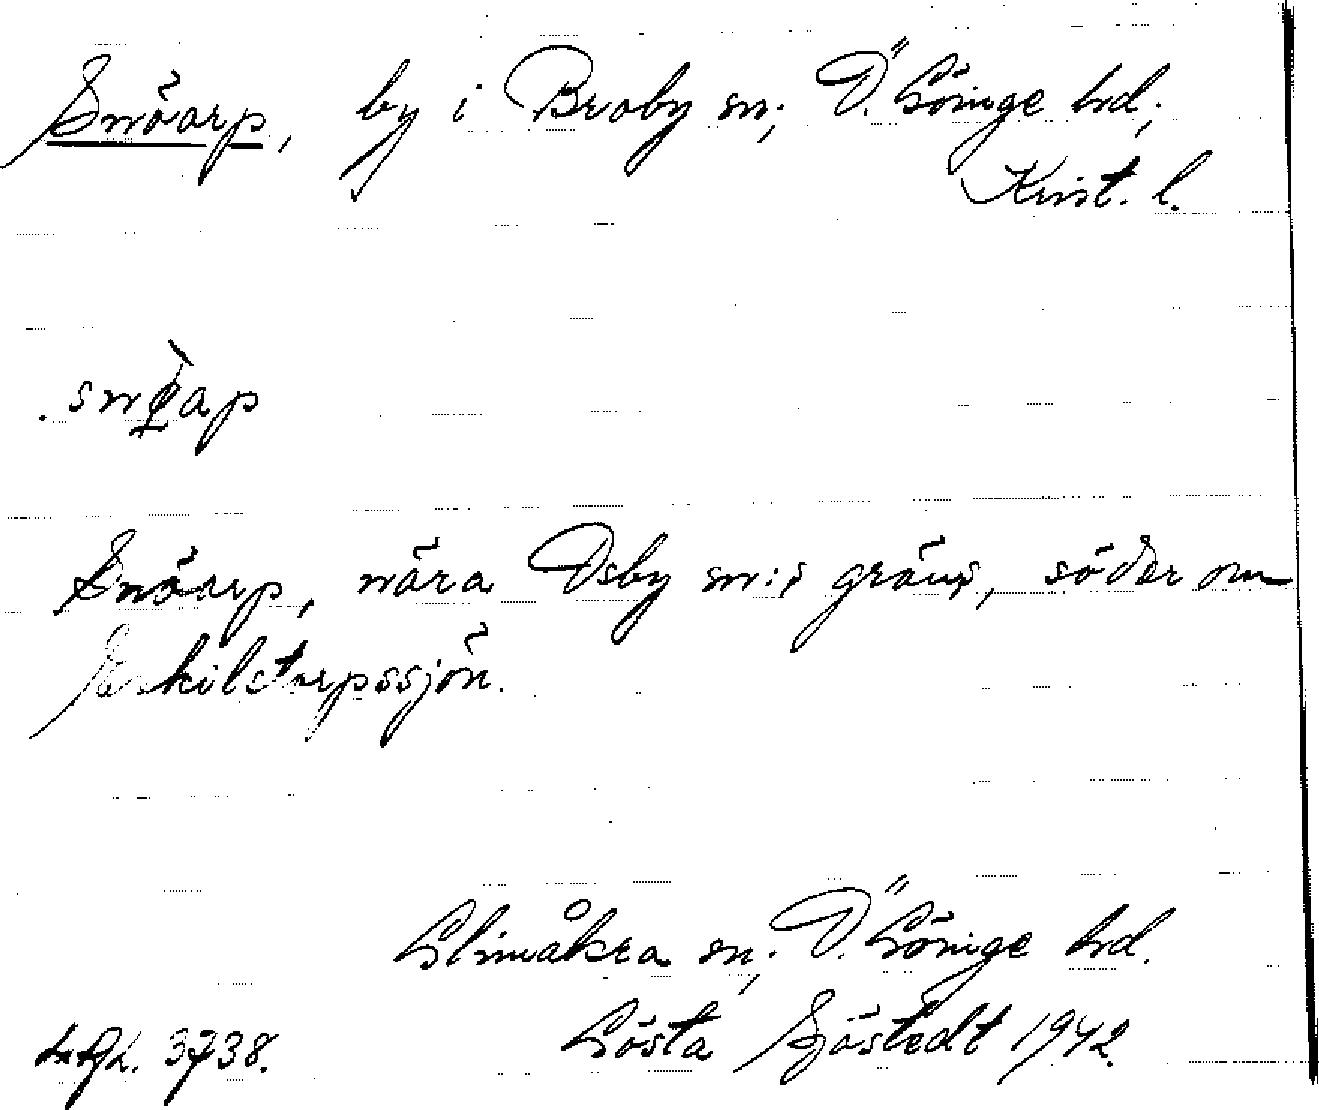 Snöarp, by i Broby sn; Ö. Göinge hd;
Krist. l.
Snöarp, nära Osby sn:s gräns, söder om
Eskilstorpssjön.
Glimåkra sn; Ö. Göinge hd.
Gösta Sjöstedt 1942.
3738.